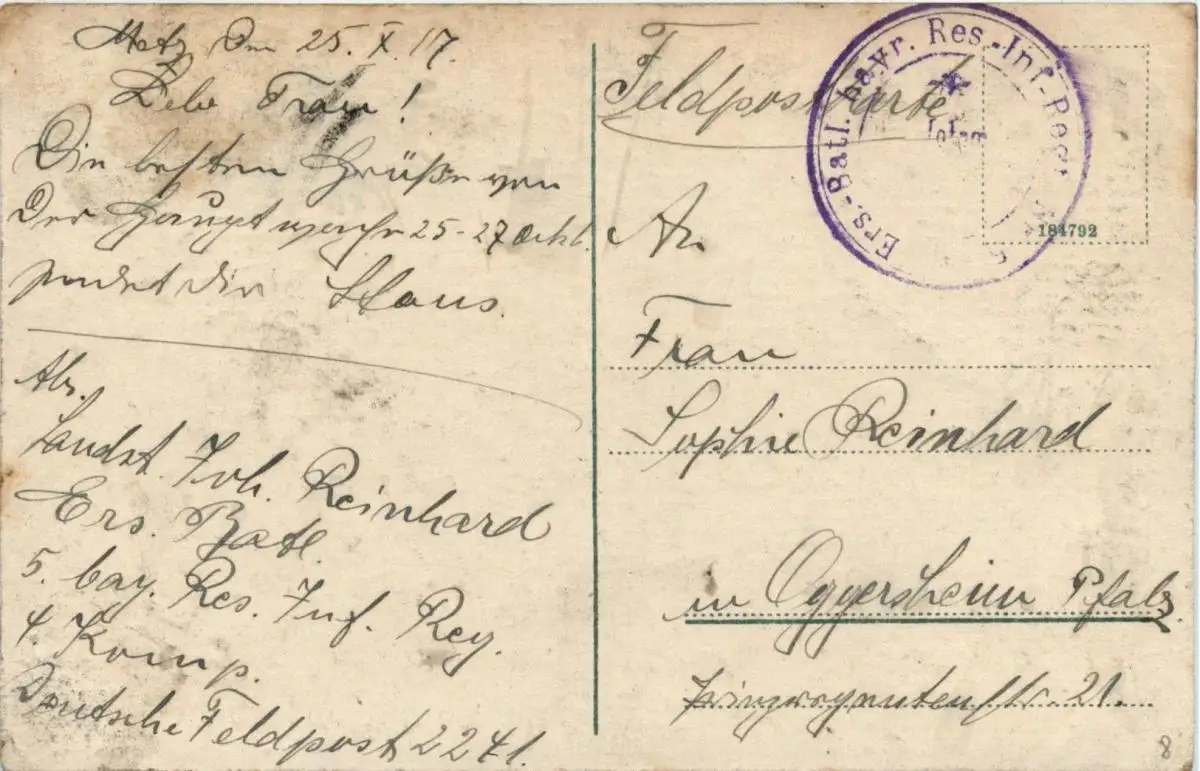 Metz, Den 25. X. 17.
Liebe Frau!
Die besten Grüße von
Der Hauptwache 25-27 Okt.
sendet dir Hans.
Abs.
Landst. Joh. Reinhard
Ers. Batl.
5. bay. Res. Inf. Reg.
4. Komp.
Deutsche Feldpost 2241.
Feldpostkarte
Ers.-Batl. bayr. Res.-Inf-Reg.
184792
An
Frau
Sophie Reinhard
in Oggersheim Pfalz
Prinzregentenstr. 21.
8